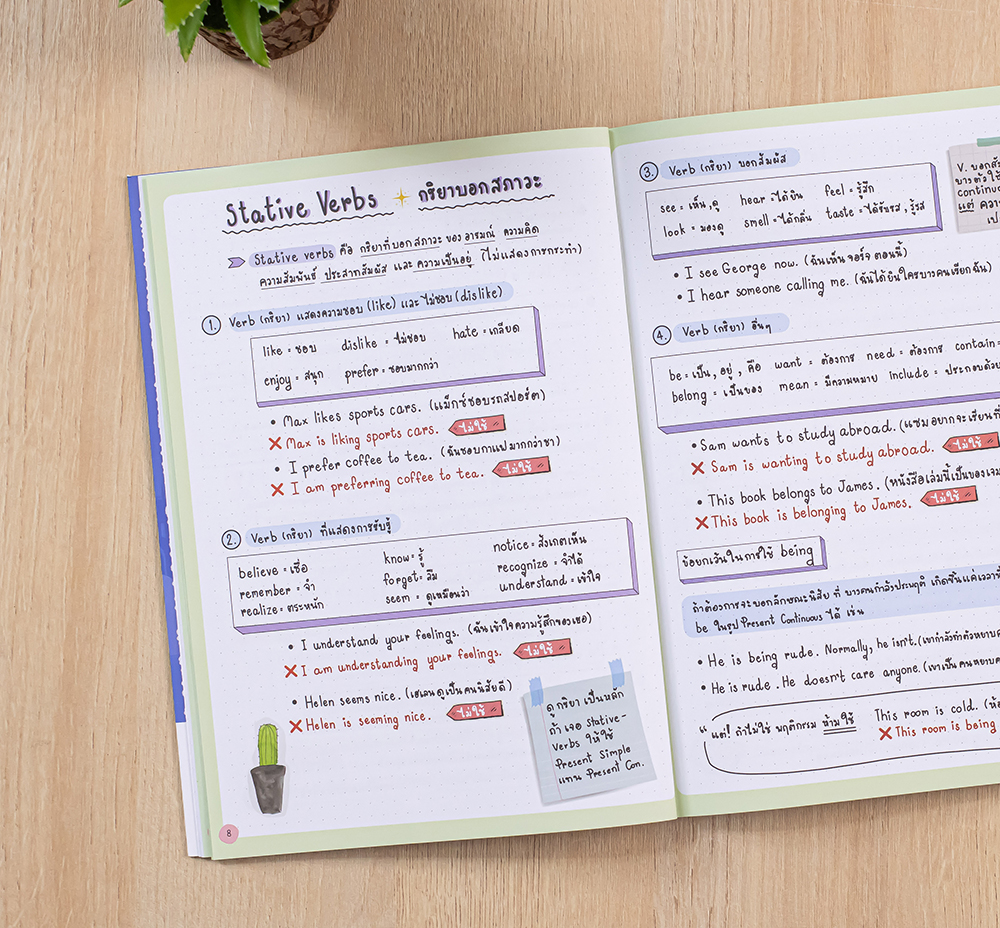 Stative Verbs กริยาบอกสภาวะ
Stative verbs คือ กริยาที่บอกสภาวะ ของ อารมณ์ ความคิด
ความสัมพันธ์ ประสาทสัมผัส และ ความเป็นอยู่ (ไม่แสดงการกระทำ)
1. Verb (กริยา) แสดงความชอบ (like) และ ไม่ชอบ (dislike)
like = ชอบ dislike = ไม่ชอบ hate = เกลียด
enjoy = สนุก prefer = ชอบมากกว่า
• Max likes sports cars. (แม็กซ์ชอบรถสปอร์ต)
✕ Max is liking sports cars. ไม่ใช้
• I prefer coffee to tea. (ฉันชอบกาแฟมากกว่าชา)
✕ I am preferring coffee to tea. ไม่ใช้
2. Verb (กริยา) ที่แสดงการรับรู้
believe = เชื่อ know = รู้ notice = สังเกตเห็น
remember = จำ forget = ลืม recognize = จำได้
realize = ตระหนัก seem = ดูเหมือนว่า understand = เข้าใจ
• I understand your feelings. (ฉันเข้าใจความรู้สึกของเธอ)
✕ I am understanding your feelings. ไม่ใช้
• Helen seems nice. (เฮเลนดูเป็นคนนิสัยดี)
✕ Helen is seeming nice. ไม่ใช้
ดูกริยา เป็นหลัก
ถ้า เจอ Stative-
Verbs ให้ใช้
Present Simple
แทน Present Con.
8
3. Verb (กริยา) บอกสัมผัส
see = เห็น, ดู hear = ได้ยิน feel = รู้สึก
look = มองดู smell = ได้กลิ่น taste = ได้รับรส, รู้รส
V. บอกสัม
บางตัวใช้
continu
แต่ ความ
เป
• I see George now. (ฉันเห็น จอร์จ ตอนนี้)
• I hear someone calling me. (ฉันได้ยินใครบางคนเรียกฉัน)
4. Verb (กริยา) อื่นๆ
be = เป็น, อยู่, คือ want = ต้องการ need = ต้องการ contain =
belong = เป็นของ mean = มีความหมาย include = ประกอบด้วย
• Sam wants to study abroad. (แซมอยากจะเรียนที่
✕ Sam is wanting to study abroad. ไม่ใช้
• This book belongs to James. (หนังสือเล่มนี้เป็นของเจม
✕ This book is belonging to James. ไม่ใช้
ข้อยกเว้นในการใช้ being
ถ้าต้องการจะบอกลักษณะนิสัย ที่ บางคนกำลังประพฤติ เกิดขึ้นแค่เวลานี้
be ในรูป Present Continuous ได้ เช่น
• He is being rude. Normally, he isn't. (เขากำลังทำตัวหยาบค
• He is rude. He doesn't care anyone. (เขาเป็นคนหยาบค
" แต่! ถ้าไม่ใช่ พฤติกรรม ห้ามใช้ This room is cold. (ห้อ
✕ This room is being